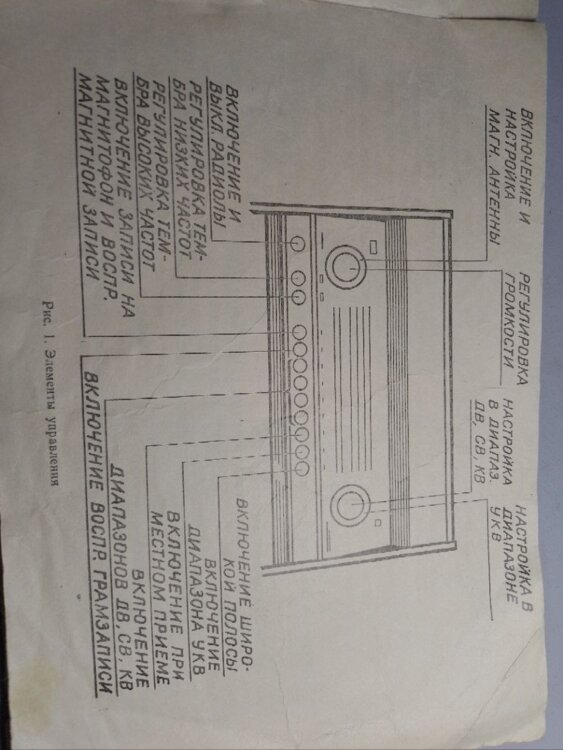 ВКЛЮЧЕНИЕ И
НАСТРОЙКА
МАГН. АНТЕННЫ
РЕГУЛИРОВКА
ГРОМКОСТИ
НАСТРОЙКА
В ДИАПАЗ.
ДВ, СВ, КВ
НАСТРОЙКА В
ДИАПАЗОНЕ
УКВ
ВКЛЮЧЕНИЕ И
ВЫКЛ. РАДИОЛЫ
РЕГУЛИРОВКА ТЕМ-
БРА НИЗКИХ ЧАСТОТ
РЕГУЛИРОВКА ТЕМ-
БРА ВЫСОКИХ ЧАСТОТ
ВКЛЮЧЕНИЕ ЗАПИСИ НА
МАГНИТОФОН И ВОСПР.
МАГНИТНОЙ ЗАПИСИ
ВКЛЮЧЕНИЕ ШИРО-
КОЙ ПОЛОСЫ
ВКЛЮЧЕНИЕ
ДИАПАЗОНА УКВ
ВКЛЮЧЕНИЕ ПРИ
МЕСТНОМ ПРИЕМЕ
ВКЛЮЧЕНИЕ
ДИАПАЗОНОВ ДВ, СВ, КВ
ВКЛЮЧЕНИЕ ВОСПР. ГРАМЗАПИСИ
Рис. 1. Элементы управления